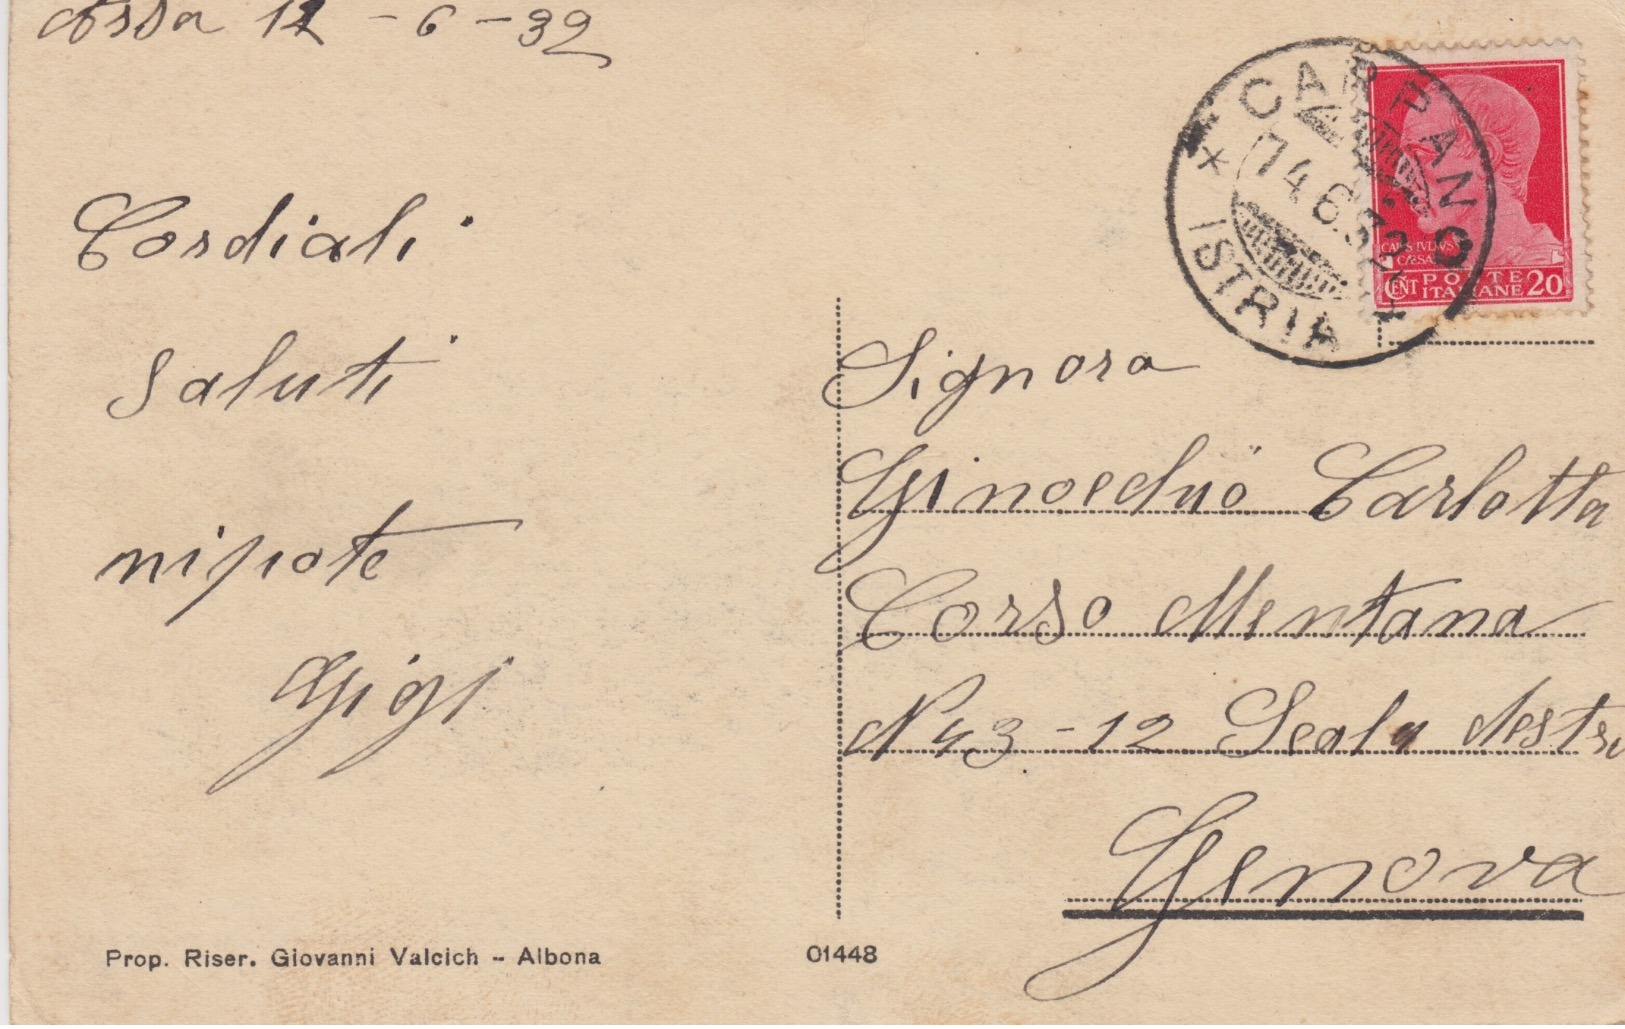 Arsa 12 - 6 - 32
Cordiali
saluti
nipote
Gigi
CARPANO
* ISTRIA *
14.6.32
CAIVS IVLIVS
CÆSAR
CENT POSTE
ITALIANE 20
Signora
Ginocchio Carlotta
Corso Mentana
N 43 - 12 Scala destra
Genova
Prop. Riser. Giovanni Valcich - Albona
01448